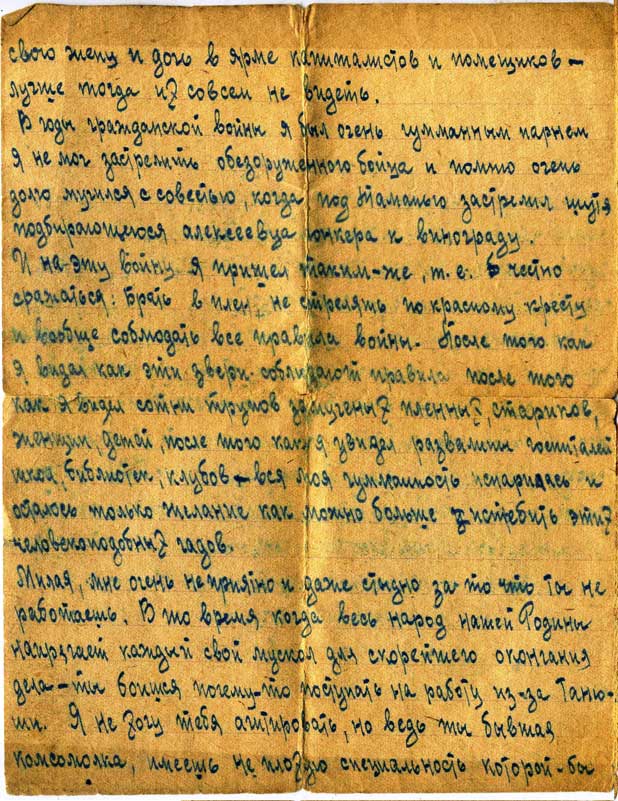 свою жену и дочь в ярме капиталистов и помещиков —
лучше тогда их совсем не видеть.
В годы гражданской войны я был очень гумманным парнем
Я не мог застрелить обезоруженного бойца и помню очень
долго мучился с совестью, когда под Таманью застрелил шутя
подбирающегося алексеевца юнкера к винограду.
И на эту войну я пришел таким-же, т.е. честно
сражаться: Брать в плен не стрелять по красному кресту
и вообще соблюдать все правила войны. После того как
я видал как эти звери соблюдают правила после того
как я видел сотни трупов замученых пленных, стариков,
женщин, детей, после того как я увидел развалины госпиталей
школ, библиотек, клубов — вся моя гумманность испарилась и
осталось только желание как можно больше истребить этих
человекоподобных гадов.
Милая, мне очень неприятно и даже стыдно за то что ты не
работаешь. В то время когда весь народ нашей Родины
напрягает каждый свой мускол для скорейшего окончания
дела — ты боишся почему-то поступать на работу из-за Таню-
ши. Я не хочу тебя агитировать, но ведь ты бывшая
комсомолка, имеешь не плохую специальность которой-бы